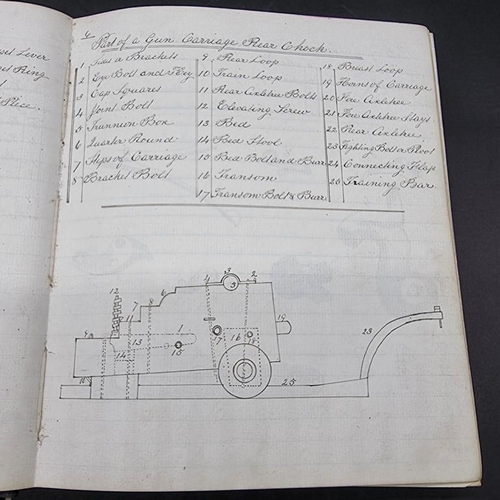 ses Lever
Ring
Piece.
Part of a Gun Carriage Rear Chock.
1 Sides or Brackets
2 Eye Bolt and Key
3 Cap Squares
4 Joint Bolt
5 Trunnion Box
6 Quarter Round
7 Steps of Carriage
8 Bracket Bolt
9 Rear Loop
10 Train Loop
11 Rear Axletree Bolts
12 Elevating Screw
13 Bed
14 Bed Stool
15 Bed Bolt and Burr
16 Transom
17 Transom Bolt & Burr
18 Breast Loop
19 Horns of Carriage
20 Fore Axletree
21 Fore Axletree Stays
22 Rear Axletree
23 Fighting Bolt or Pivot
24 Connecting Flap
25 Training Bar
12
11
7
6
8
4
3
3
2
9
13
1
14
15
17
16
18
19
10
25
23